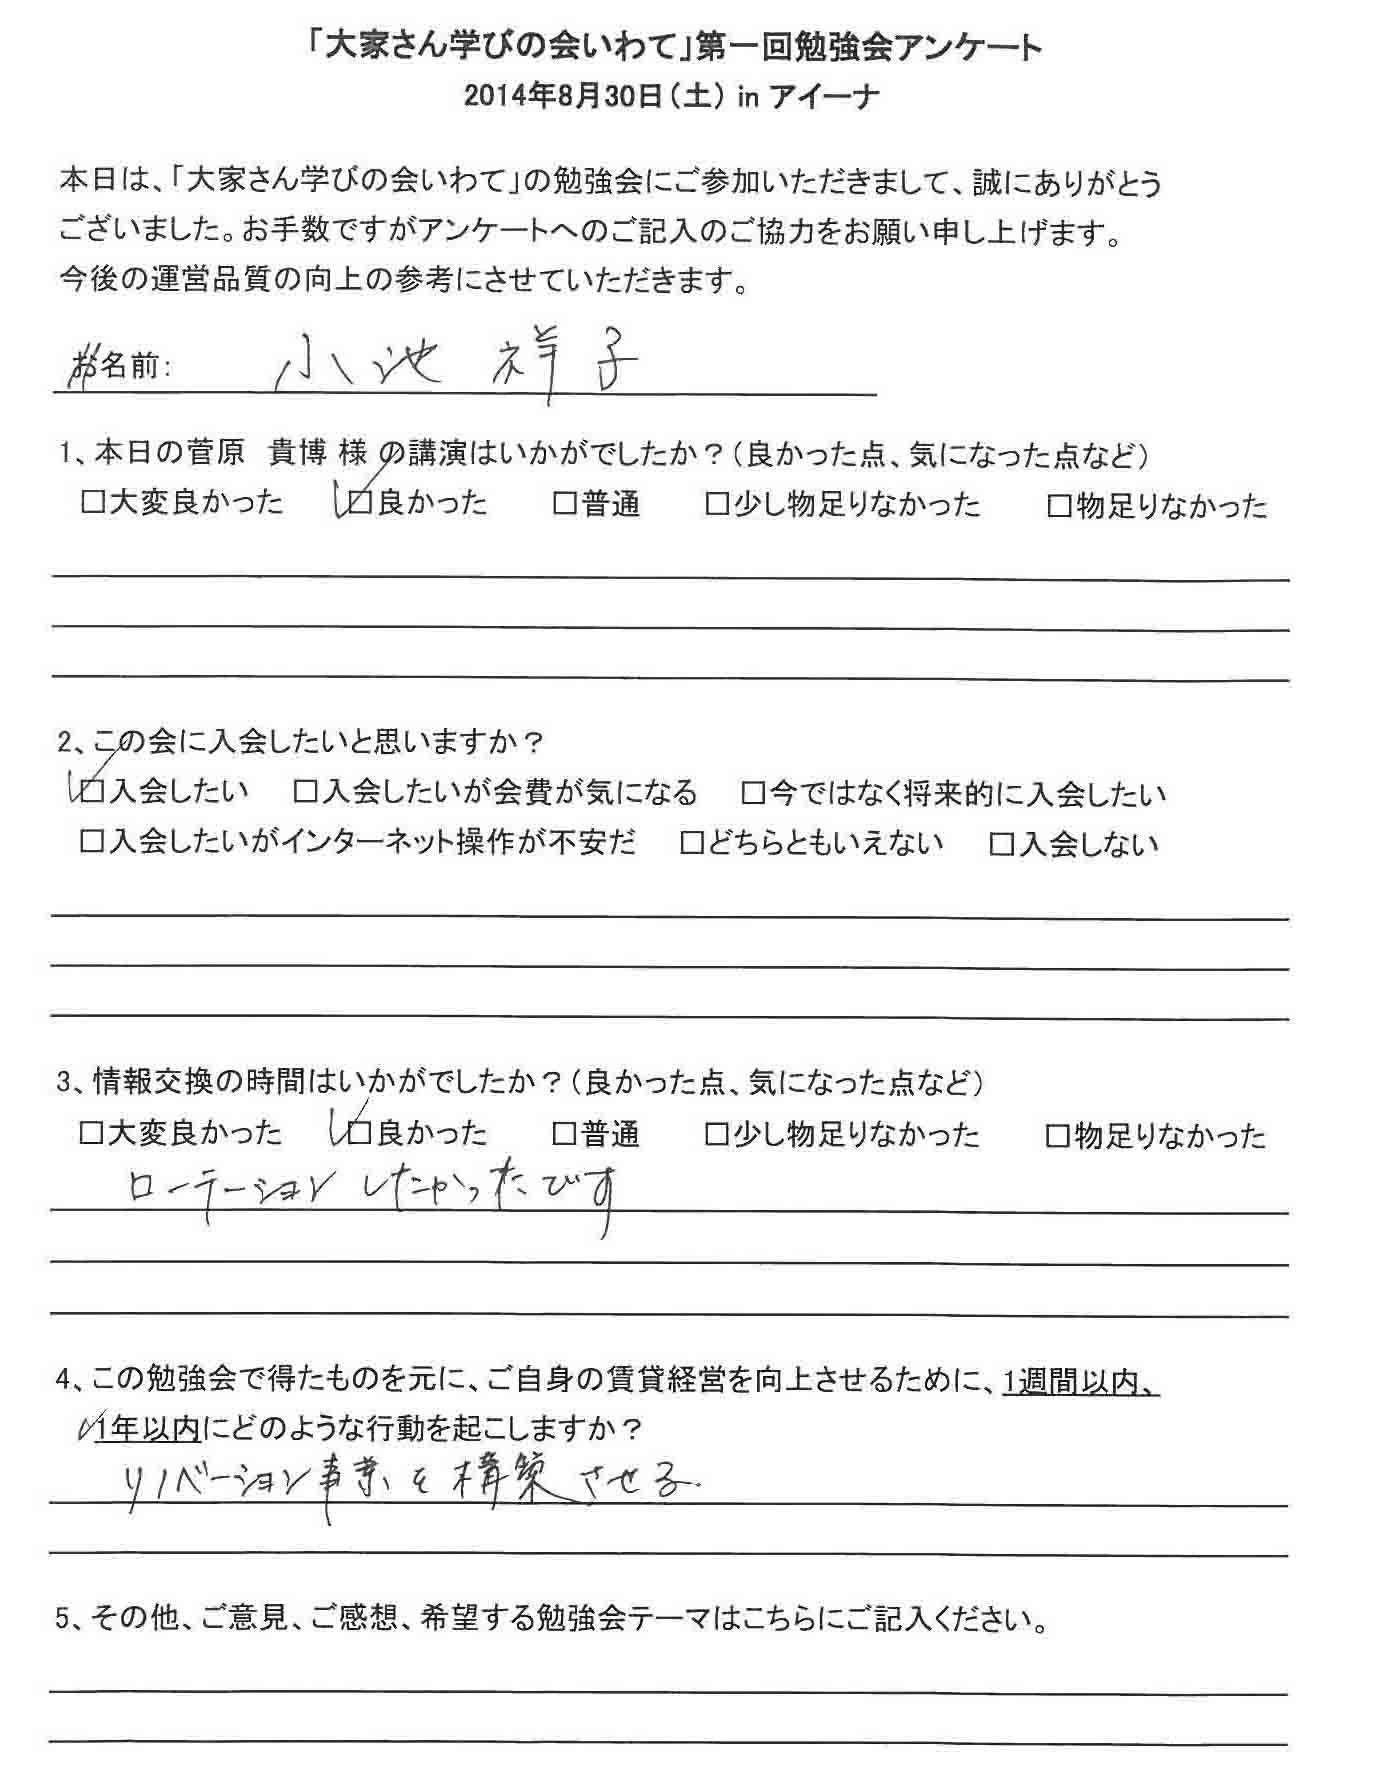 「大家さん学びの会いわて」第一回勉強会アンケート
2014年8月30日（土） in アイーナ
本日は、「大家さん学びの会いわて」の勉強会にご参加いただきまして、誠にありがとう
ございました。お手数ですがアンケートへのご記入のご協力をお願い申し上げます。
今後の運営品質の向上の参考にさせていただきます。
お名前： 小池 祥子
1、本日の菅原　貴博 様 の講演はいかがでしたか？（良かった点、気になった点など）
□大変良かった □良かった □普通 □少し物足りなかった □物足りなかった
2、この会に入会したいと思いますか？
□入会したい □入会したいが会費が気になる □今ではなく将来的に入会したい
□入会したいがインターネット操作が不安だ □どちらともいえない □入会しない
3、情報交換の時間はいかがでしたか？（良かった点、気になった点など）
□大変良かった □良かった □普通 □少し物足りなかった □物足りなかった
ローテーションしたかったです
4、この勉強会で得たものを元に、ご自身の賃貸経営を向上させるために、1週間以内、
1年以内にどのような行動を起こしますか？
リノベーション事業を構築させる.
5、その他、ご意見、ご感想、希望する勉強会テーマはこちらにご記入ください。